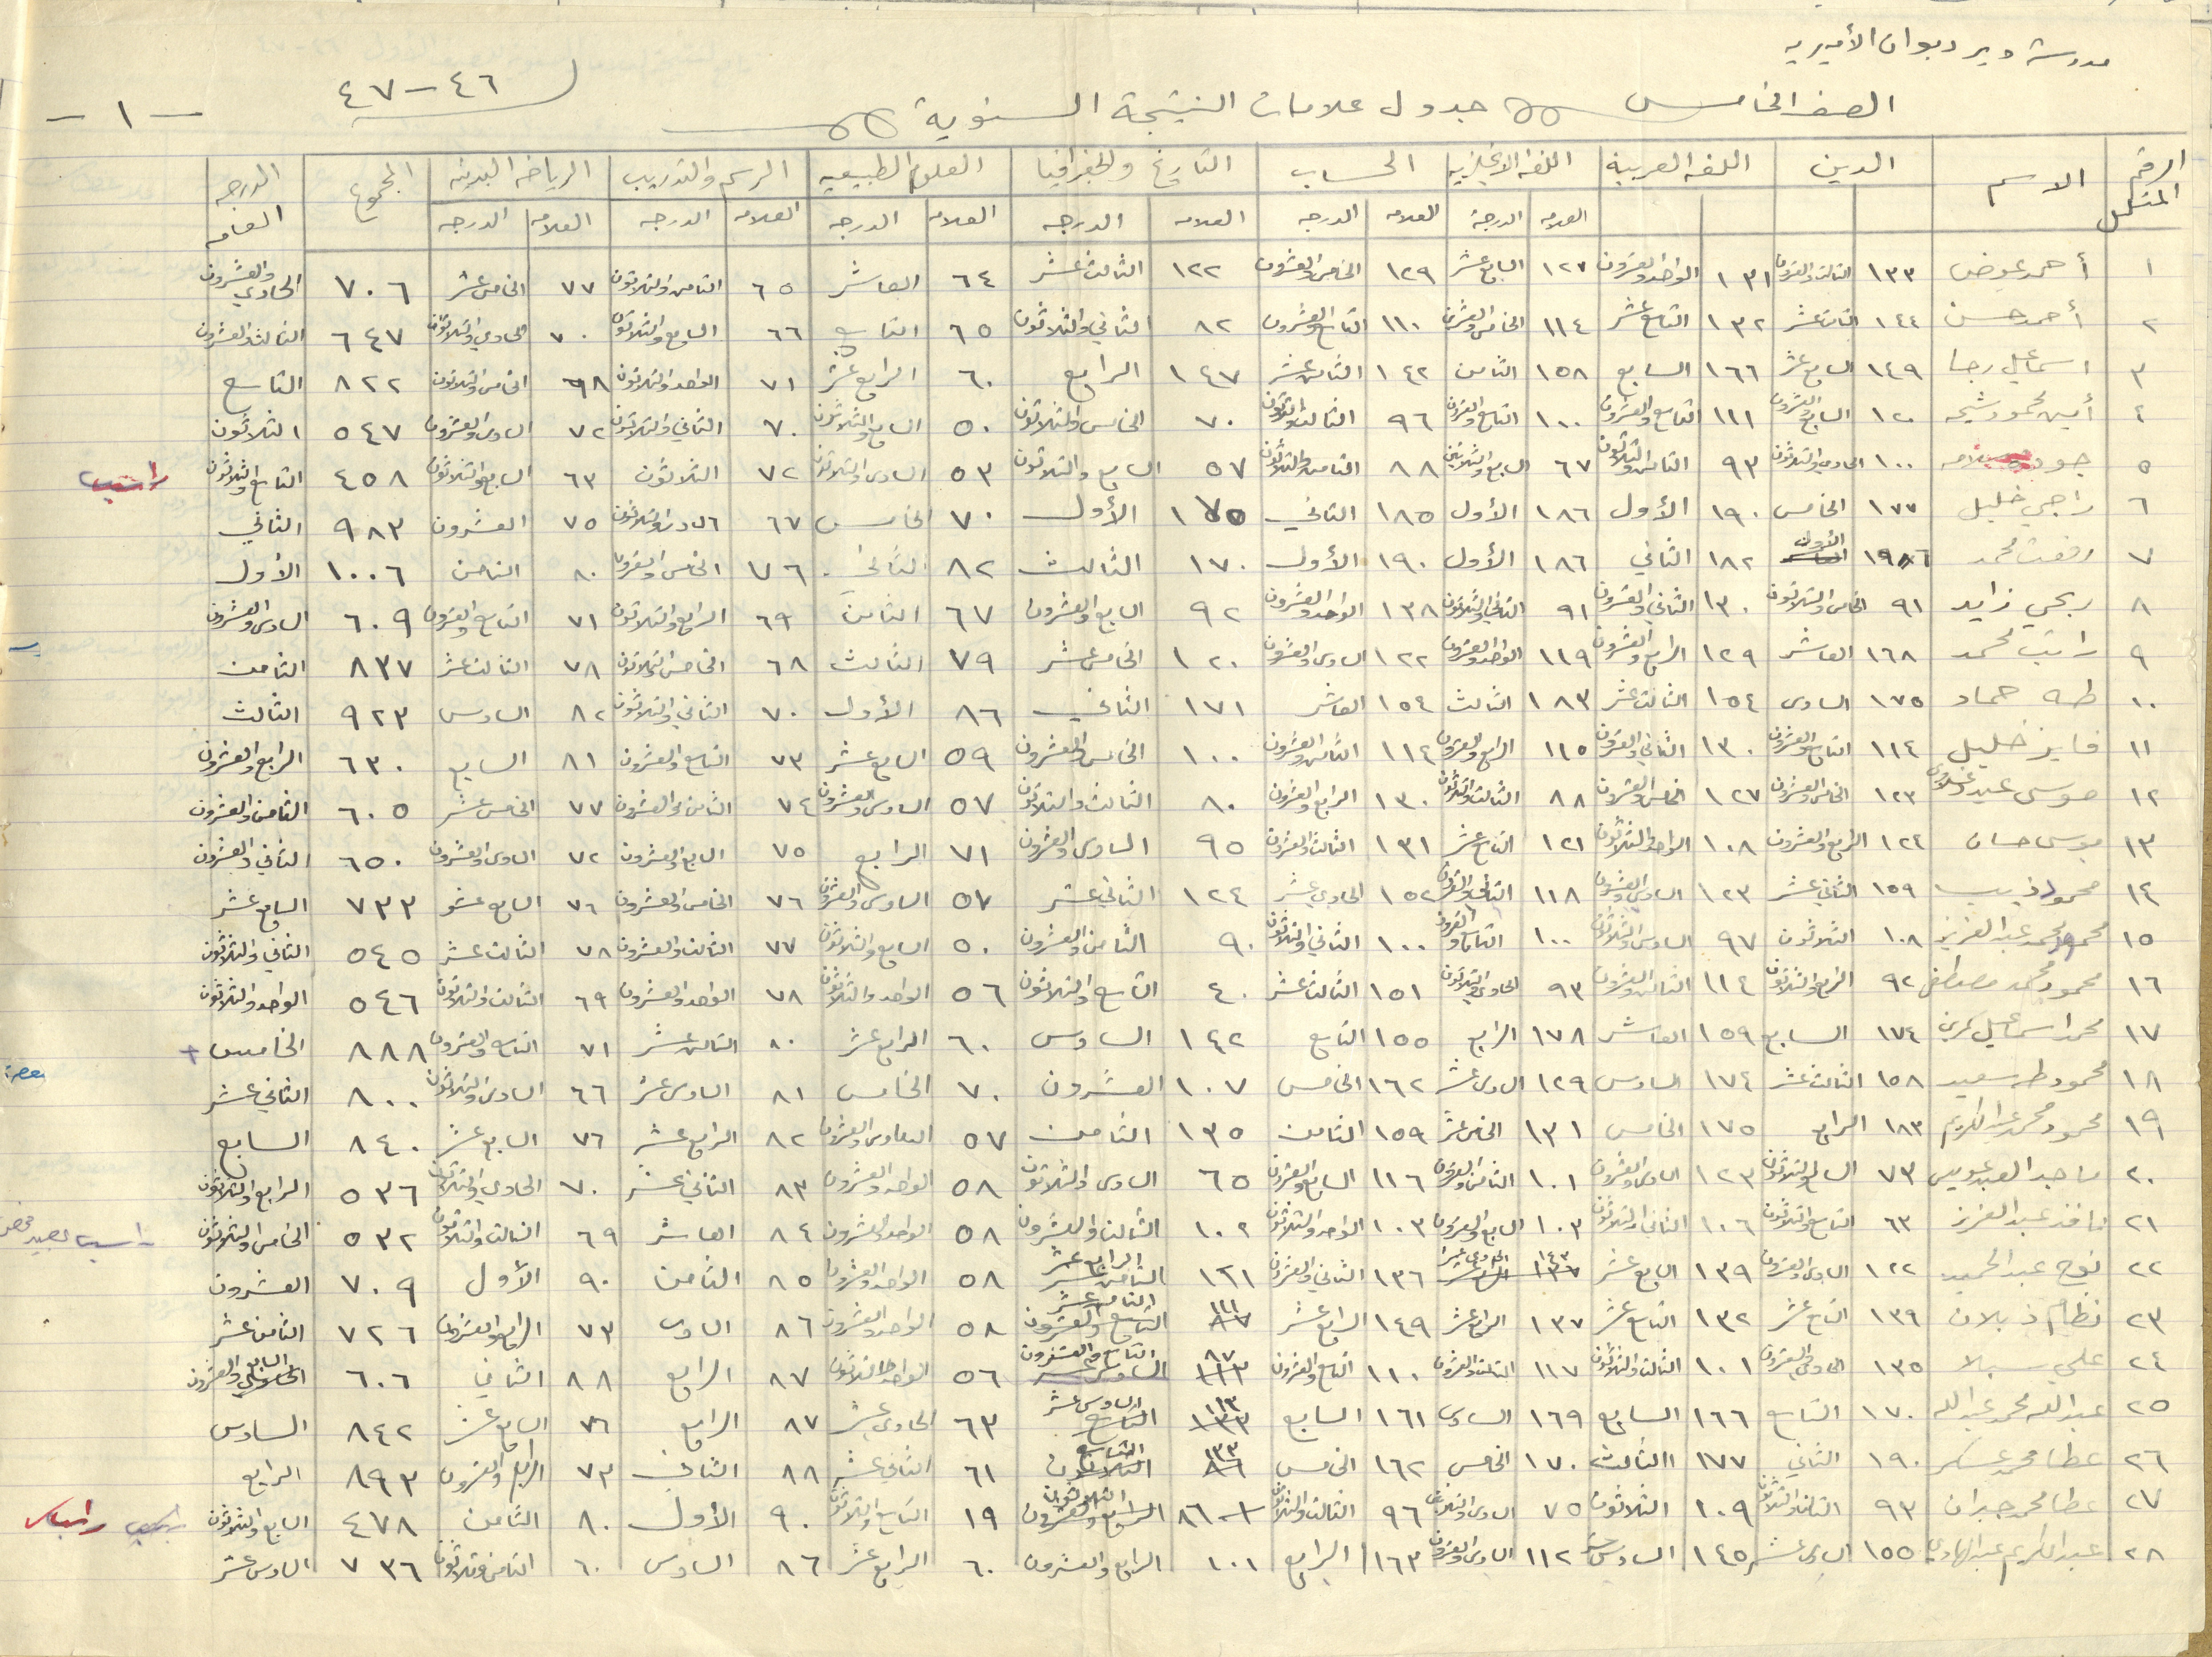 مدرسة دير ديوان الأميرية
الصف الخامس جدول علامات النتيجة السنوية ٤٦-٤٧
-١-
الرقم المتسلسل الاسم الدين اللغة العربية اللغة الانجليزية الحساب التاريخ والجغرافيا العلوم الطبيعيه الرسم والتدريب الرياضه البدنيه المجموع الدرجه العامه
العلامه الدرجة العلامه الدرجه العلامه الدرجه العلامه الدرجه العلامه الدرجه العلامه الدرجه
١ أحمد عوض ١٣٣ الثالث والعشرون ١٣١ الواحد والعشرون ١٢٧ السابع عشر ١٢٩ الخامس والعشرون ١٢٢ الثالث عشر ٦٤ العاشر ٦٥ الثامن والثلاثون ٧٧ الخامس عشر ٧٠٦ الحادي والعشرون
٢ أحمد حسن ١٤٤ الثامن عشر ١٣٢ التاسع عشر ١١٤ الخامس والعشرون ١١٠ التاسع والعشرون ٨٢ الثاني والثلاثون ٦٥ التاسع ٦٦ السابع والثلاثون ٧٠ الحادي والثلاثون ٦٤٧ الثالث والعشرون
٣ اسماعيل رجا ١٤٩ السابع عشر ١٦٦ السابع ١٥٨ الثامن ١٤٢ الثامن عشر ١٤٧ الرابع ٦٠ الرابع عشر ٧١ الواحد والثلاثون ٦٨ الخامس والثلاثون ٨٢٢ التاسع
٤ أمين محمود شيحه ١٢٠ السابع والعشرون ١١١ التاسع والعشرون ١٠٠ التاسع والعشرون ٩٦ الثالث والثلاثون ٧٠ الخامس والثلاثون ٥٠ السابع والثلاثون ٧٠ الثاني والثلاثون ٧٢ السادس والعشرون ٥٤٧ الثلاثون
٥ جوده سلامه ١٠٠ الحادي والثلاثون ٩٣ الثامن والثلاثون ٦٧ السابع والثلاثين ٨٨ الثامن والثلاثون ٥٧ السابع والثلاثون ٥٣ السادس والثلاثون ٧٢ الثلاثون ٦٣ السابع والثلاثون ٤٥٨ التاسع والثلاثون راسب
٦ راجي خليل ١٧٧ الخامس ١٩٠ الأول ١٨٦ الأول ١٨٥ الثاني ١٧٥ الأول ٧٠ الخامس ٦٧ السادس والثلاثون ٧٥ العشرون ٩٨٣ الثاني
٧ رفعت محمد ١٩٦ الأول ١٨٢ الثاني ١٨٦ الأول ١٩٠ الأول ١٧٠ الثالث ٨٢ الثاني ٧٦ الخامس والعشرون ٨٠ الثامن ١٠٠٦ الأول
٨ ربحي زايد ٩١ الخامس والثلاثون ١٣٠ الثاني والعشرون ٩١ الثاني والثلاثون ١٣٨ الواحد والعشرون ٩٢ السابع والعشرون ٦٧ الثامن ٦٩ الرابع والثلاثون ٧١ التاسع والعشرون ٦٠٩ السادس والعشرون
٩ راتب محمد ١٦٨ العاشر ١٢٩ الرابع والعشرون ١١٩ الواحد والعشرون ١٢٢ السادس والعشرون ١٢٠ الخامس عشر ٧٩ الثالث ٦٨ الخامس والثلاثون ٧٨ الثالث عشر ٨٣٧ الثامن
١٠ طه حماد ١٧٥ السادس ١٥٤ الثالث عشر ١٨٣ الثالث ١٥٤ العاشر ١٧١ الثاني ٨٦ الأول ٧٠ الثاني والثلاثون ٨٢ السادس ٩٢٣ الثالث
١١ فايز خليل ١١٤ التاسع والعشرون ١٣٠ الثاني والعشرون ١١٥ الرابع والعشرون ١١٤ الثامن والعشرون ١٠٠ الخامس والعشرون ٥٩ السابع عشر ٧٣ التاسع والعشرون ٨١ السابع ٦٣٠ الرابع والعشرون
١٢ موسى عيد ١٢٣ الخامس والعشرون ١٢٧ الخامس والعشرون ٨٨ الثالث والثلاثون ١٣٠ الرابع والعشرون ٨٠ الثالث والثلاثون ٥٧ السادس والعشرون ٧٤ الثامن والعشرون ٧٧ الخامس عشر ٦٠٥ الثامن والعشرون
١٣ موسى حسان ١٢٤ الرابع والعشرون ١٠٨ الواحد والثلاثون ١٢١ التاسع عشر ١٣١ الثالث والعشرون ٩٥ السادس والعشرون ٧١ الرابع ٧٥ السابع والعشرون ٧٢ السادس والعشرون ٦٥٠ الثاني والعشرون
١٤ محمود ذيب ١٥٩ الثاني عشر ١٢٣ السادس والعشرون ١١٨ الثاني والعشرون ١٥٢ الحادي عشر ١٢٤ الثاني عشر ٥٧ السادس والعشرون ٧٦ الخامس والعشرون ٧٦ السابع عشر ٧٣٣ السابع عشر
١٥ محمود محمد عبد العزيز ١٠٨ الثلاثون ٩٧ السادس والثلاثون ١٠٠ التاسع والعشرون ١٠٠ الثاني والثلاثون ٩٠ الثامن والعشرون ٥٠ السابع والثلاثون ٧٧ الثالث والعشرون ٧٨ الثالث عشر ٥٤٥ الثاني والثلاثون
١٦ محمود محمد مصطفى ٩٢ الرابع والثلاثون ١١٤ الثامن والعشرون ٩٣ الحادي والثلاثون ١٥١ الثالث عشر ٤٠ التاسع والثلاثون ٥٦ الواحد والثلاثون ٧٨ الواحد والعشرون ٦٩ الثالث والثلاثون ٥٤٦ الواحد والثلاثون
١٧ محمد اسماعيل ١٧٤ السابع ١٥٩ العاشر ١٧٨ الرابع ١٥٥ التاسع ١٤٢ السادس ٦٠ الرابع عشر ٨٠ الثامن عشر ٧١ التاسع والعشرون ٨٨٨ الخامس +
١٨ محمود طه سعيد ١٥٨ الثالث عشر ١٧٤ السادس ١٢٩ السادس عشر ١٦٢ الخامس ١٠٧ العشرون ٧٠ الخامس ٨١ السادس عشر ٦٦ السادس والثلاثون ٨٠٠ الثاني عشر
١٩ محمود محمد عبد الكريم ١٨٣ الرابع ١٧٥ الخامس ١٣١ الخامس عشر ١٥٩ الثامن ١٣٥ الثامن ٥٧ السادس والعشرون ٨٢ الرابع عشر ٧٦ السابع عشر ٨٤٠ السابع
٢٠ ماجد العبد عويس ٧٣ السابع والثلاثون ١٢٣ السادس والعشرون ١٠١ الثامن والعشرون ١١٦ السابع والعشرون ٦٥ السادس والثلاثون ٥٨ الواحد والعشرون ٨٣ الثاني عشر ٧٠ الحادي والثلاثون ٥٣٦ الرابع والثلاثون
٢١ نافذ عبد العزيز ٦٣ التاسع والثلاثون ١٠٦ الثاني والثلاثون ١٠٣ السابع والعشرون ١٠٣ الواحد والثلاثون ١٠٢ الثالث والعشرون ٥٨ الواحد والعشرون ٨٤ العاشر ٦٩ الثالث والثلاثون ٥٣٢ الخامس والثلاثون راسب
٢٢ نوح عبد الحميد ١٢٢ السادس والعشرون ١٣٩ السابع عشر ١٤٣ الحادي عشر ١٣٦ الثاني والعشرون ١٢١ الرابع عشر ٥٨ الواحد والعشرون ٨٥ الثامن ٩٠ الأول ٧٠٩ العشرون
٢٣ نظام ذبلان ١٣٩ التاسع عشر ١٣٢ التاسع عشر ١٣٧ الرابع عشر ١٤٩ الرابع عشر ١١١ الثامن عشر ٥٨ الواحد والعشرون ٨٦ السادس ٧٣ الرابع والعشرون ٧٢٦ الثامن عشر
٢٤ علي سبلا ١٣٥ الحادي والعشرون ١٠١ الثالث والثلاثون ١١٧ الثالث والعشرون ١١٠ التاسع والعشرون ٨٧ التاسع والعشرون ٥٦ الواحد والثلاثون ٨٧ الرابع ٨٨ الثاني ٦٠٦ السابع والعشرون
٢٥ عبد الله محمد عبد الله ١٧٠ التاسع ١٦٦ السابع ١٦٩ السادس ١٦١ السابع ١١٣ السادس عشر ٦٣ الحادي عشر ٨٧ الرابع ٧٦ السابع عشر ٨٤٢ السادس
٢٦ عطا محمد عسكر ١٩٠ الثاني ١٧٧ الثالث ١٧٠ الخامس ١٦٢ الخامس ١٣٣ التاسع ٦١ الثاني عشر ٨٨ الثاني ٧٣ الرابع والعشرون ٨٩٣ الرابع
٢٧ عطا محمد جبران ٩٣ الثالث والثلاثون ١٠٩ الثلاثون ٧٥ السادس والثلاثون ٩٦ الثالث والثلاثون ٨٦ الثلاثون ١٩ التاسع والثلاثون ٩٠ الأول ٨٠ الثامن ٤٧٨ السابع والثلاثون راسب
٢٨ عبد الكريم عبد الهادي ١٥٥ السادس عشر ١٤٥ السادس عشر ١١٢ السادس والعشرون ١٦٣ الرابع ١٠١ الرابع والعشرون ٦٠ الرابع عشر ٨٦ السادس ٦٠ الثامن وثلاثون ٧٣٦ السادس عشر